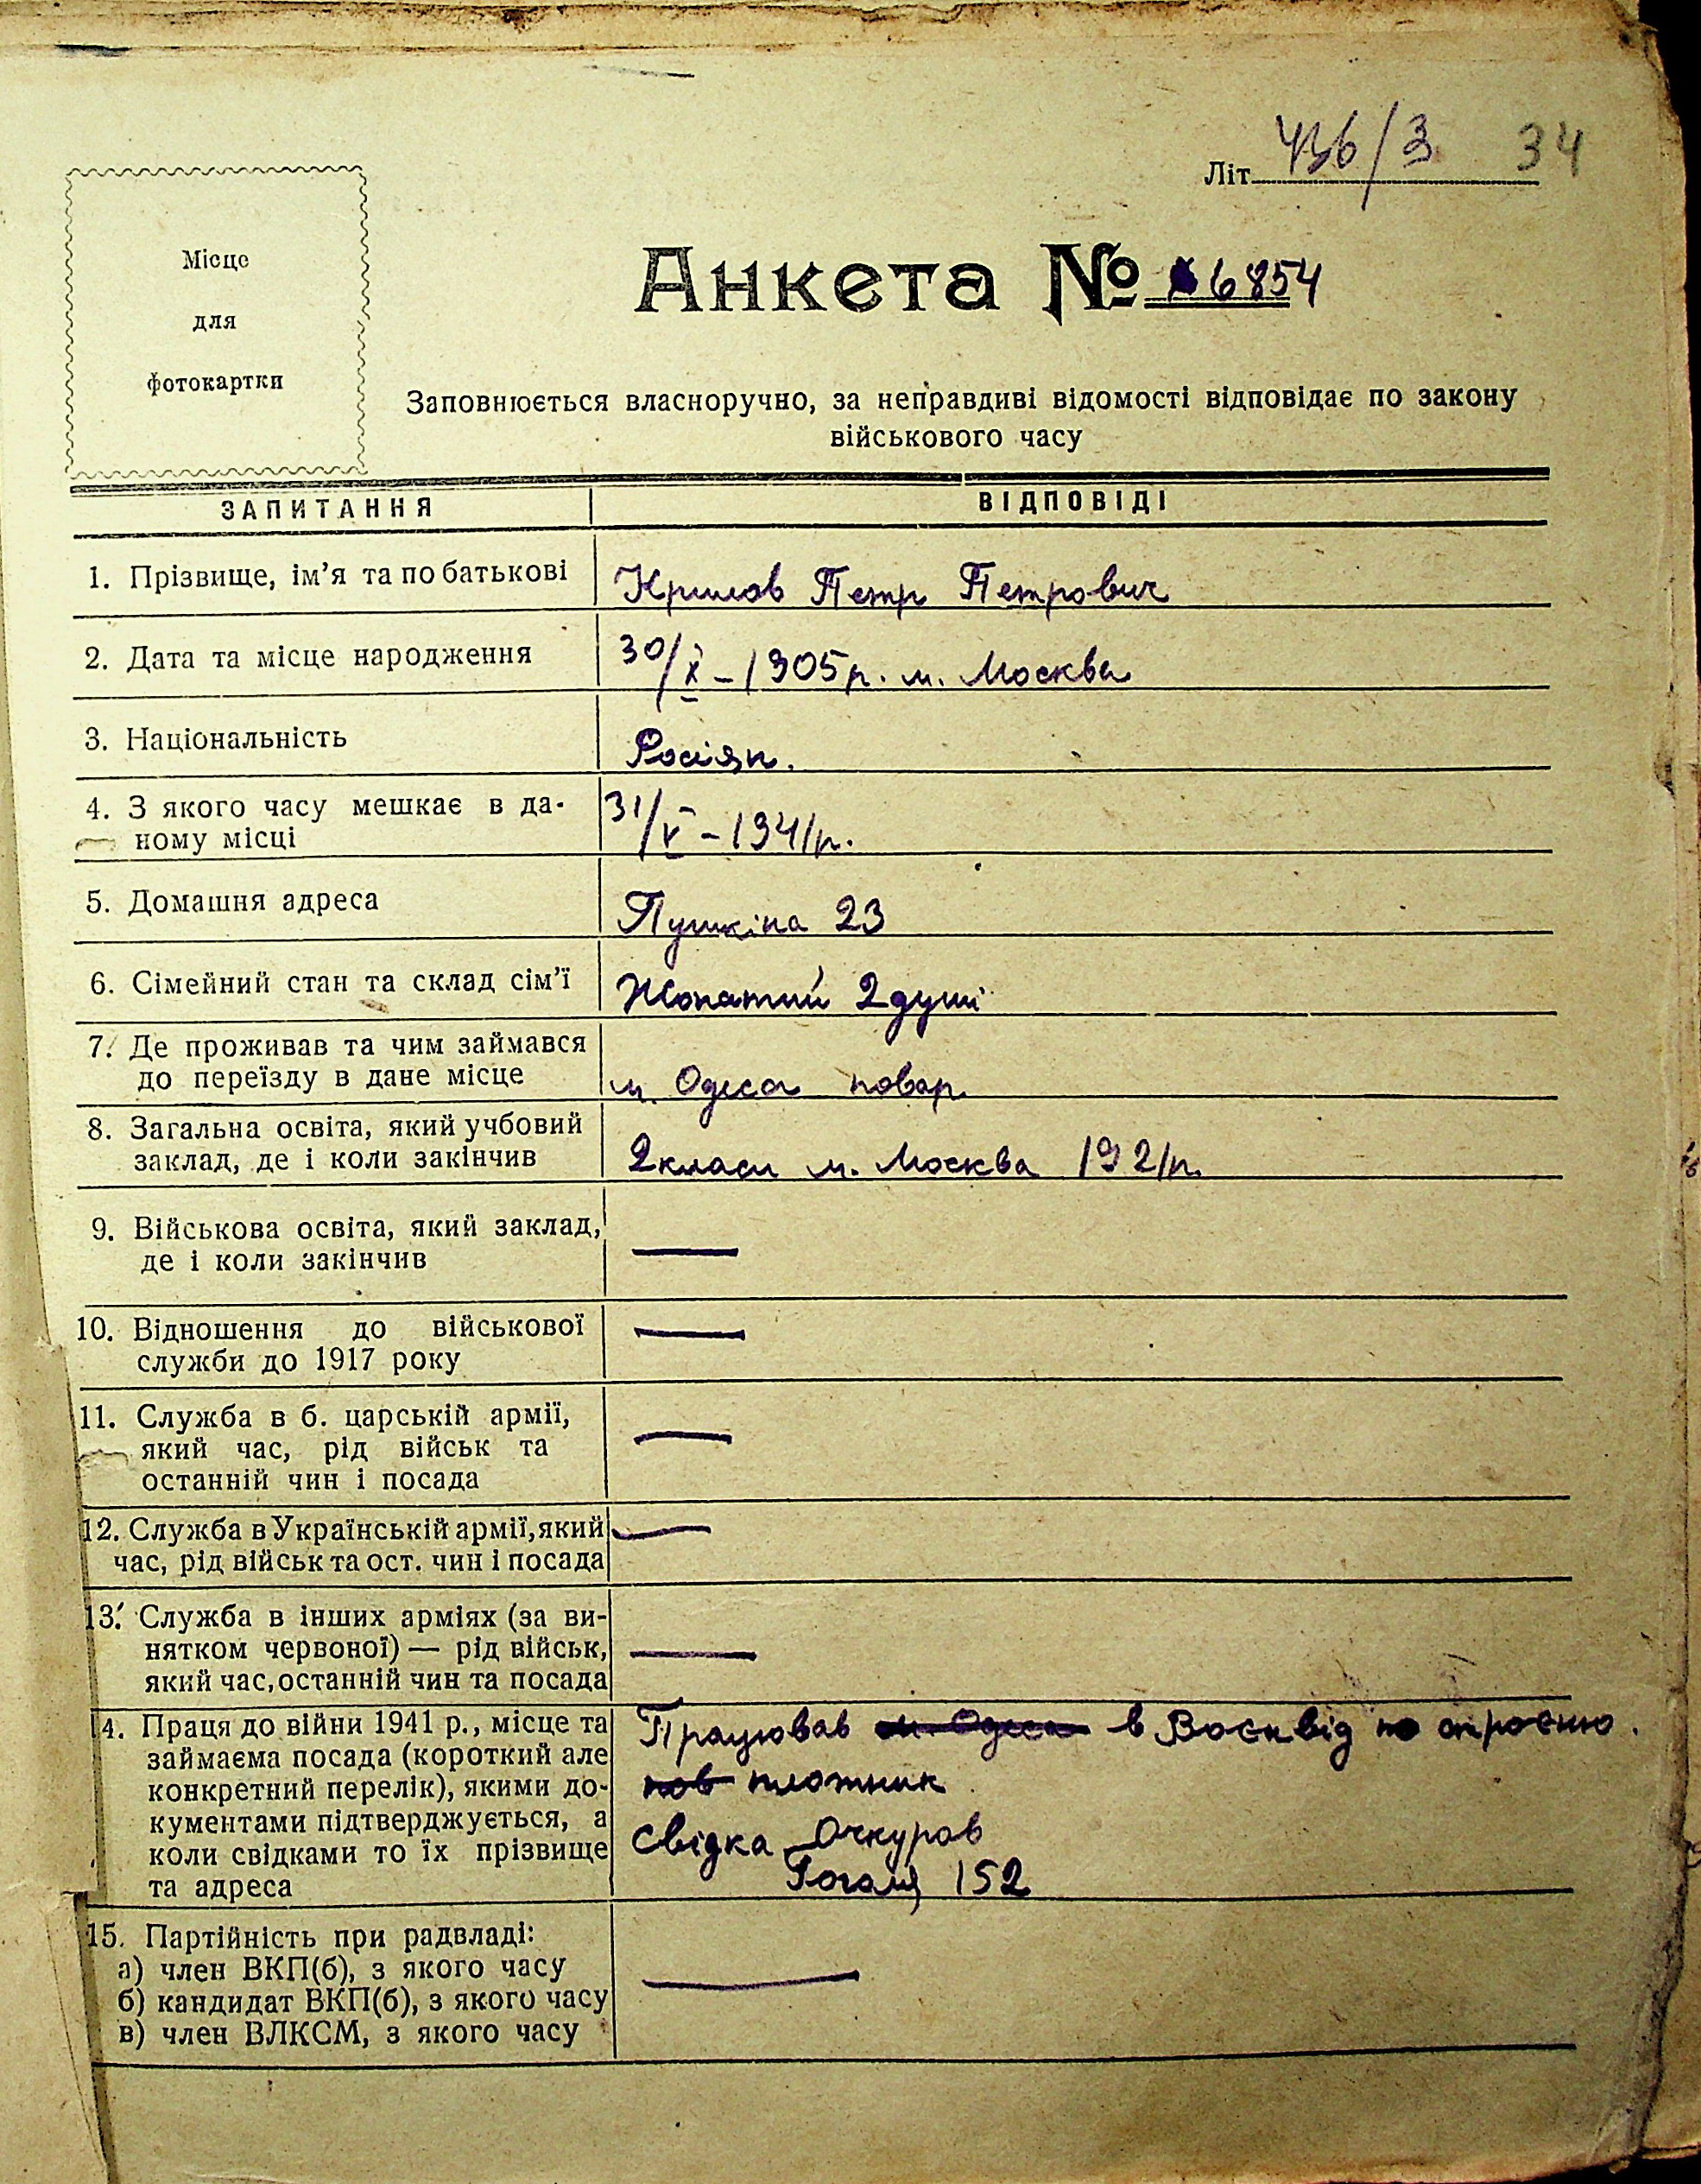 Літ. 436/3 34
Місце
для
фотокартки
Анкета № 6854
Заповнюється власноручно, за неправдиві відомості відповідає по закону
військового часу
ЗАПИТАННЯ ВІДПОВІДІ
1. Прізвище, ім’я та по батькові Крилов Петр Петрович
2. Дата та місце народження 30/X – 1905 р. м. Москва
3. Національність Росіян.
4. З якого часу мешкає в да- 31/V – 1941 р.
ному місці
5. Домашня адреса Пушкіна 23
6. Сімейний стан та склад сім’ї Жонатий 2 душі
7. Де проживав та чим займався
до переїзду в дане місце м. Одеса повар
8. Загальна освіта, який учбовий
заклад, де і коли закінчив 2 класи м. Москва 1921 р.
9. Військова освіта, який заклад, —
де і коли закінчив
10. Відношення до військової —
служби до 1917 року
11. Служба в б. царській армії, —
який час, рід військ та
останній чин і посада
12. Служба в Українській армії, який —
час, рід військ та ост. чин і посада
13. Служба в інших арміях (за ви-
нятком червоної) — рід військ, —
який час, останній чин та посада
14. Праця до війни 1941 р., місце та Працював м. Одеса в Воєнвід по строєню.
займаєма посада (короткий але
конкретний перелік), якими до- пов плотник
кументами підтверджується, а
коли свідками то їх прізвище свідка Очкуров
та адреса Гоголя 152
15. Партійність при радвладі:
а) член ВКП(б), з якого часу —
б) кандидат ВКП(б), з якого часу
в) член ВЛКСМ, з якого часу